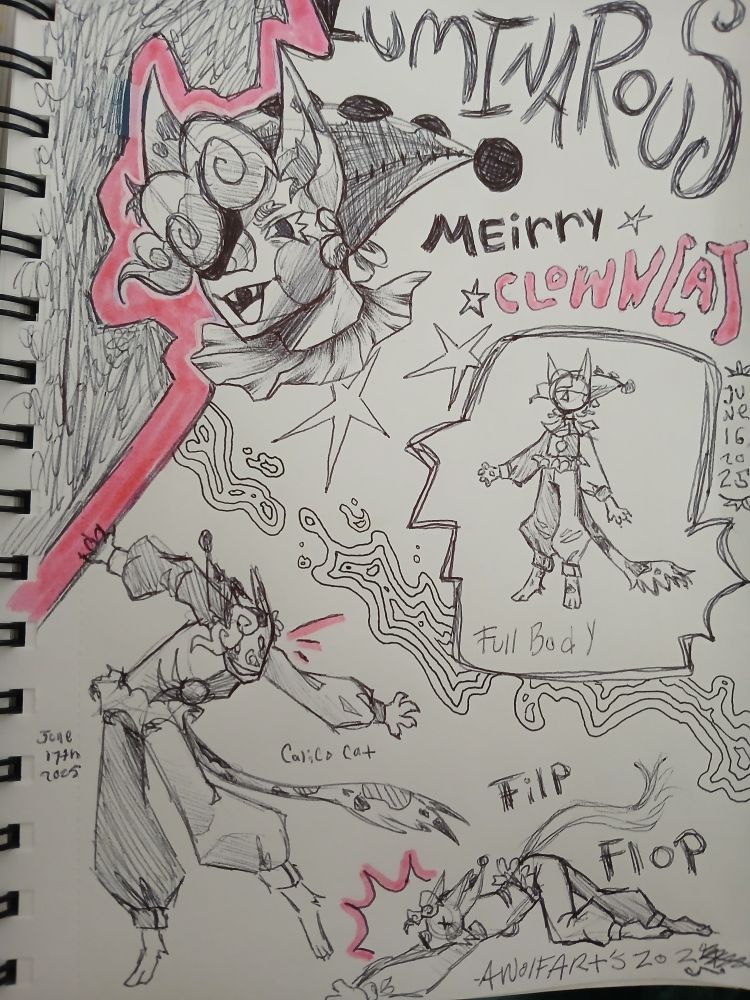 LUMINAROUS
MEirry
CLOWNCAT
JUNE
16
20
25
Full Body
June
17th
2025
Calico Cat
FilP
FloP
-AWolFArt's 202